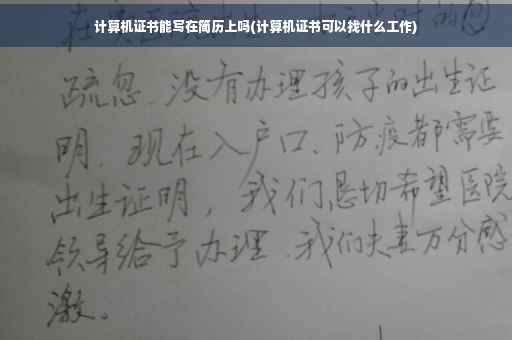 计算机证书能写在简历上吗(计算机证书可以找什么工作)
疏忽、没有办理孩子的出生证
明、现在入户口、防疫都需要
出生证明，我们恳切希望医院
领导给予办理、我们夫妻万分感
激。